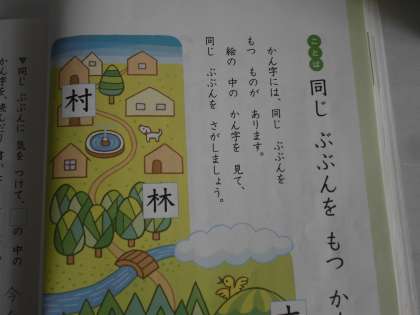 ことば
同じ ぶぶんを もつ か
かん字には、同じ ぶぶんを
もつ ものが あります。
絵の 中の かん字を 見て、
同じ ぶぶんを さがしましょう。
村
林
▼同じ ぶぶんに 気を つけて、□の 中の
かん字を、読んだり